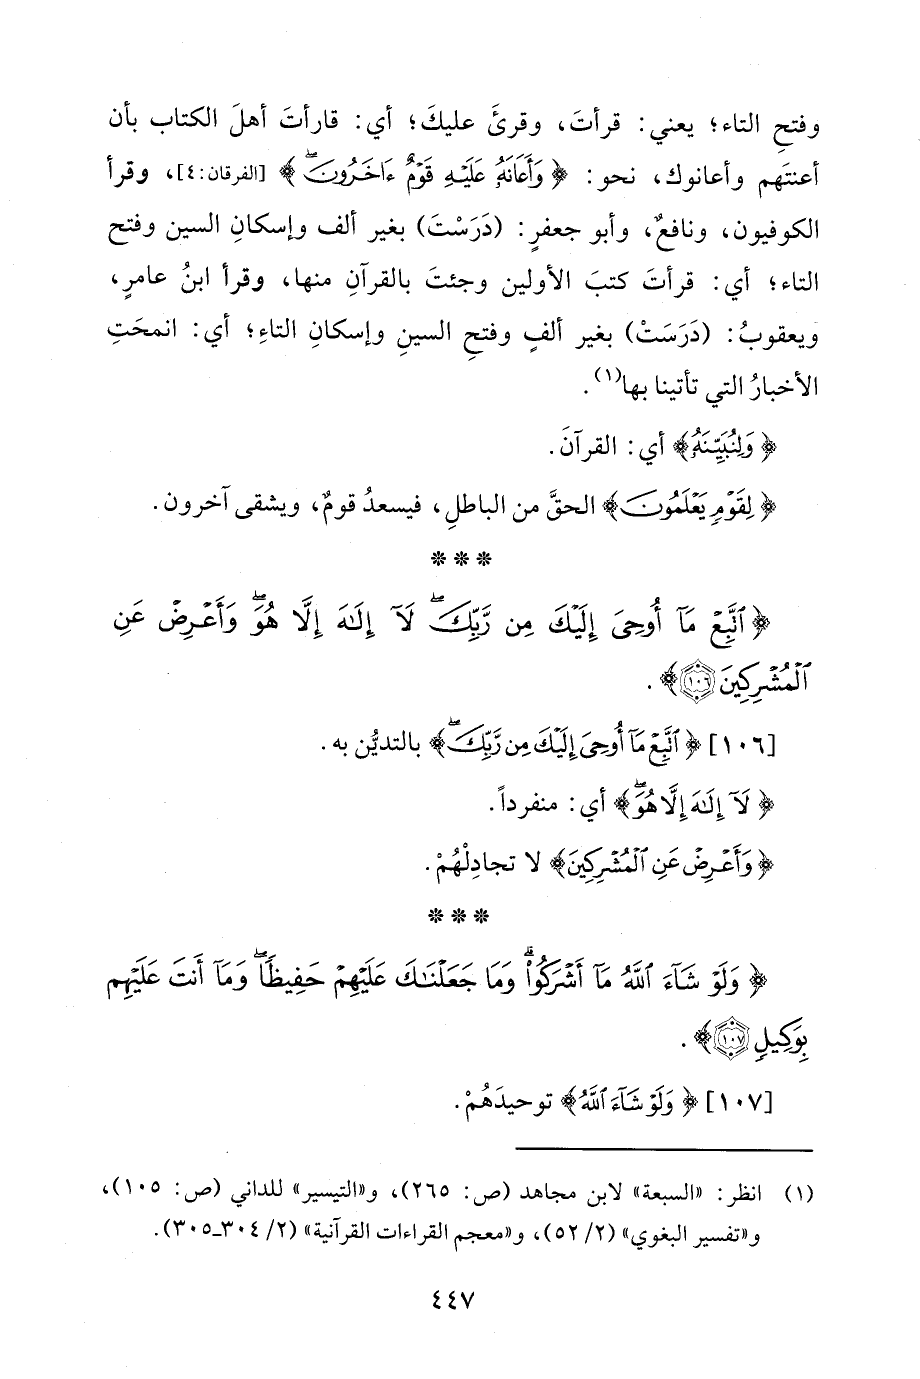 وفتحِ التاء؛ يعني: قرأتَ، وقرئَ عليكَ؛ أي: قارأتَ أهلَ الكتاب بأن
أعنتَهم وأعانوك، نحو: ﴿وَأَعَانَهُۥ عَلَيْهِ قَوْمٌ ءَاخَرُونَۖ﴾ [الفرقان: ٤]، وقرأ
الكوفيون، ونافعٌ، وأبو جعفرٍ: (دَرَسْتَ) بغير ألف وإسكانِ السين وفتح
التاء؛ أي: قرأتَ كتبَ الأولين وجئتَ بالقرآنِ منها، وقرأ ابنُ عامرٍ،
ويعقوبُ: (دَرَسَتْ) بغير ألفٍ وفتحِ السينِ وإسكان التاءِ؛ أي: انمحَتِ
الأخبارُ التي تأتينا بها(١).
﴿وَلِنُبَيِّنَهُۥ﴾ أي: القرآنَ.
﴿لِقَوْمٍ يَعْلَمُونَ﴾ الحقَّ من الباطلِ، فيسعدُ قومٌ، ويشقى آخرون.
* * *
﴿ٱتَّبِعْ مَآ أُوحِىَ إِلَيْكَ مِن رَّبِّكَۖ لَآ إِلَٰهَ إِلَّا هُوَۖ وَأَعْرِضْ عَنِ
ٱلْمُشْرِكِينَ ١٠٦﴾.
[١٠٦] ﴿ٱتَّبِعْ مَآ أُوحِىَ إِلَيْكَ مِن رَّبِّكَۖ﴾ بالتديُّن به.
﴿لَآ إِلَٰهَ إِلَّا هُوَۖ﴾ أي: منفرداً.
﴿وَأَعْرِضْ عَنِ ٱلْمُشْرِكِينَ﴾ لا تجادِلْهُمْ.
* * *
﴿وَلَوْ شَآءَ ٱللَّهُ مَآ أَشْرَكُوا۟ۗ وَمَا جَعَلْنَٰكَ عَلَيْهِمْ حَفِيظًاۖ وَمَآ أَنتَ عَلَيْهِم
بِوَكِيلٍ ١٠٧﴾.
[١٠٧] ﴿وَلَوْ شَآءَ ٱللَّهُ﴾ توحيدَهُمْ.
(١) انظر: «السبعة» لابن مجاهد (ص: ٢٦٥)، و«التيسير» للداني (ص: ١٠٥)،
و«تفسير البغوي» (٢/ ٥٢)، و«معجم القراءات القرآنية» (٢/ ٣٠٤_٣٠٥).
٤٤٧